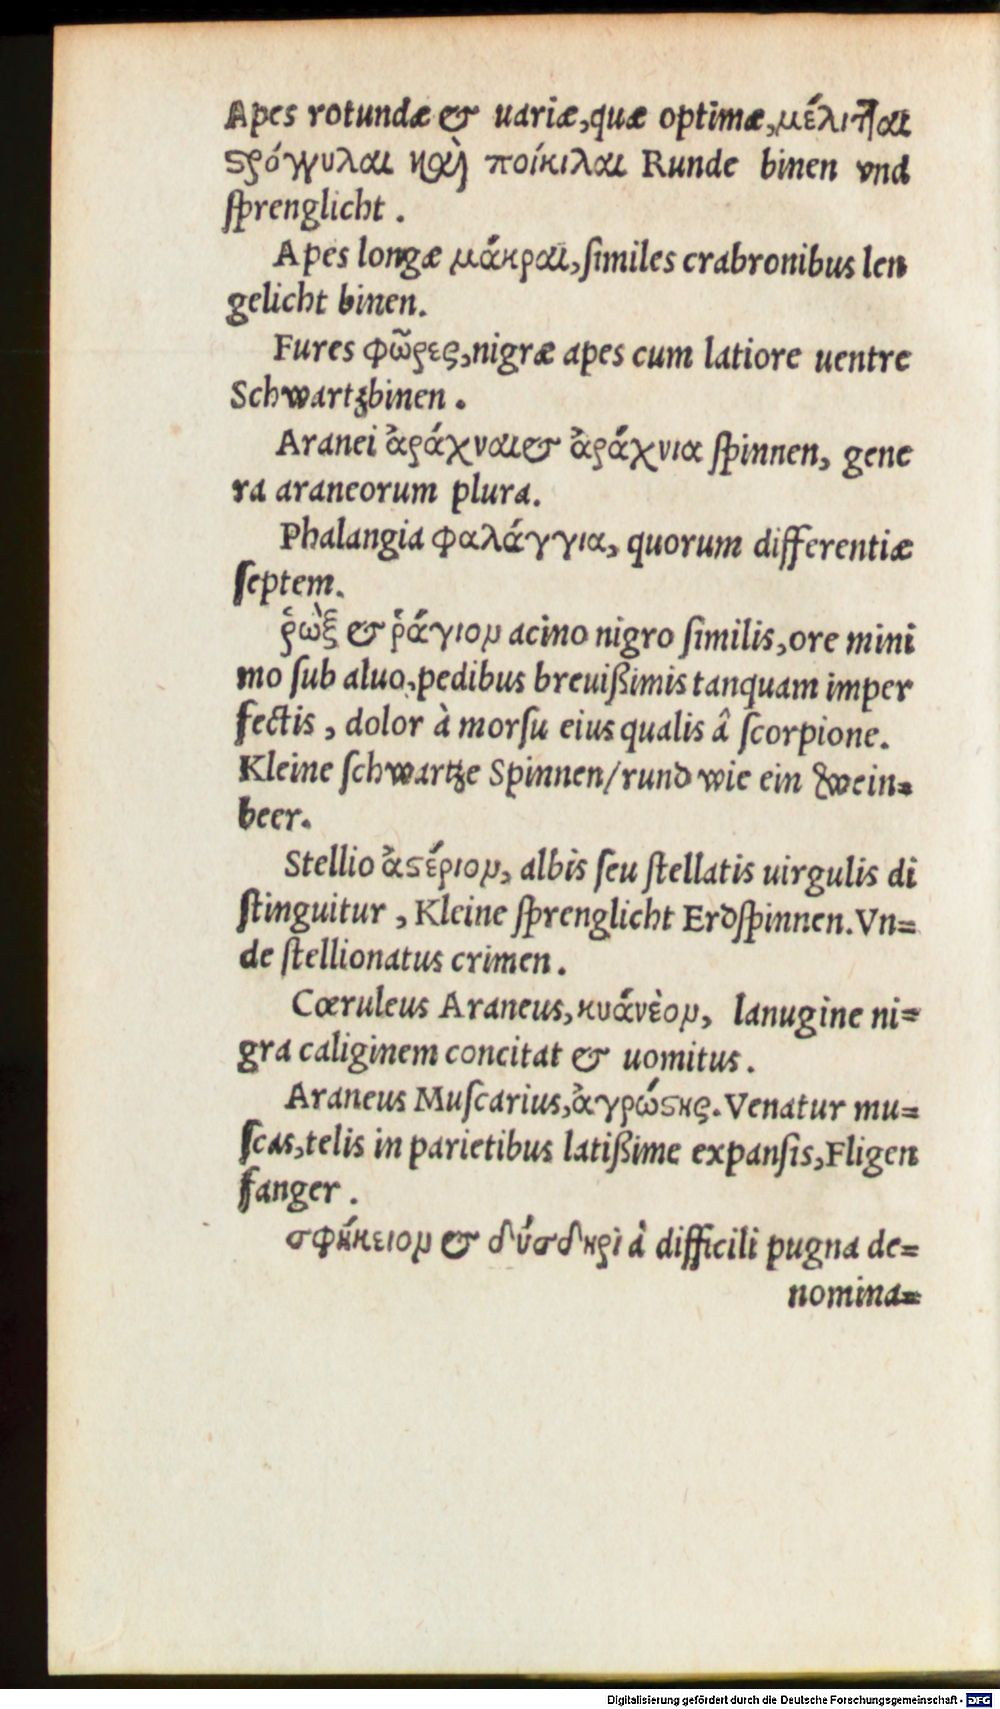 Apes rotundæ & uariæ, quæ optimæ, μέλιτ͂ται
ϛρόγγυλαι καὶ ποίκιλαι Runde binen vnd
ſprenglicht .
Apes longæ μάκραι, ſimiles crabronibus len
gelicht binen.
Fures φῶρες, nigræ apes cum latiore uentre
Schwartzbinen .
Aranei ἀράχναι & ἀράχνια ſpinnen, gene
ra araneorum plura.
Phalangia φαλάγγια, quorum differentiæ
ſeptem.
ῥὼξ & ῥάγιον acino nigro ſimilis, ore mini
mo ſub aluo, pedibus breuißimis tanquam imper
fectis , dolor à morſu eius qualis â ſcorpione.
Kleine ſchwartze Spinnen/rund wie ein Wein⸗
beer.
Stellio ἀϛέριον, albis ſeu ſtellatis uirgulis di
ſtinguitur , Kleine ſprenglicht Erdſpinnen. Vn⸗
de ſtellionatus crimen .
Cœruleus Araneus, κυάνὲον, lanugine ni⸗
gra caliginem concitat & uomitus .
Araneus Muſcarius, ἀγρώϛης. Venatur mu⸗
ſcas, telis in parietibus latißime expanſis, Fligen
fanger .
σφήκειον & δύσδηρὶ à difficili pugna de⸗
nomina⸗
Digitalisierung gefördert durch die Deutsche Forschungsgemeinschaft - DFG